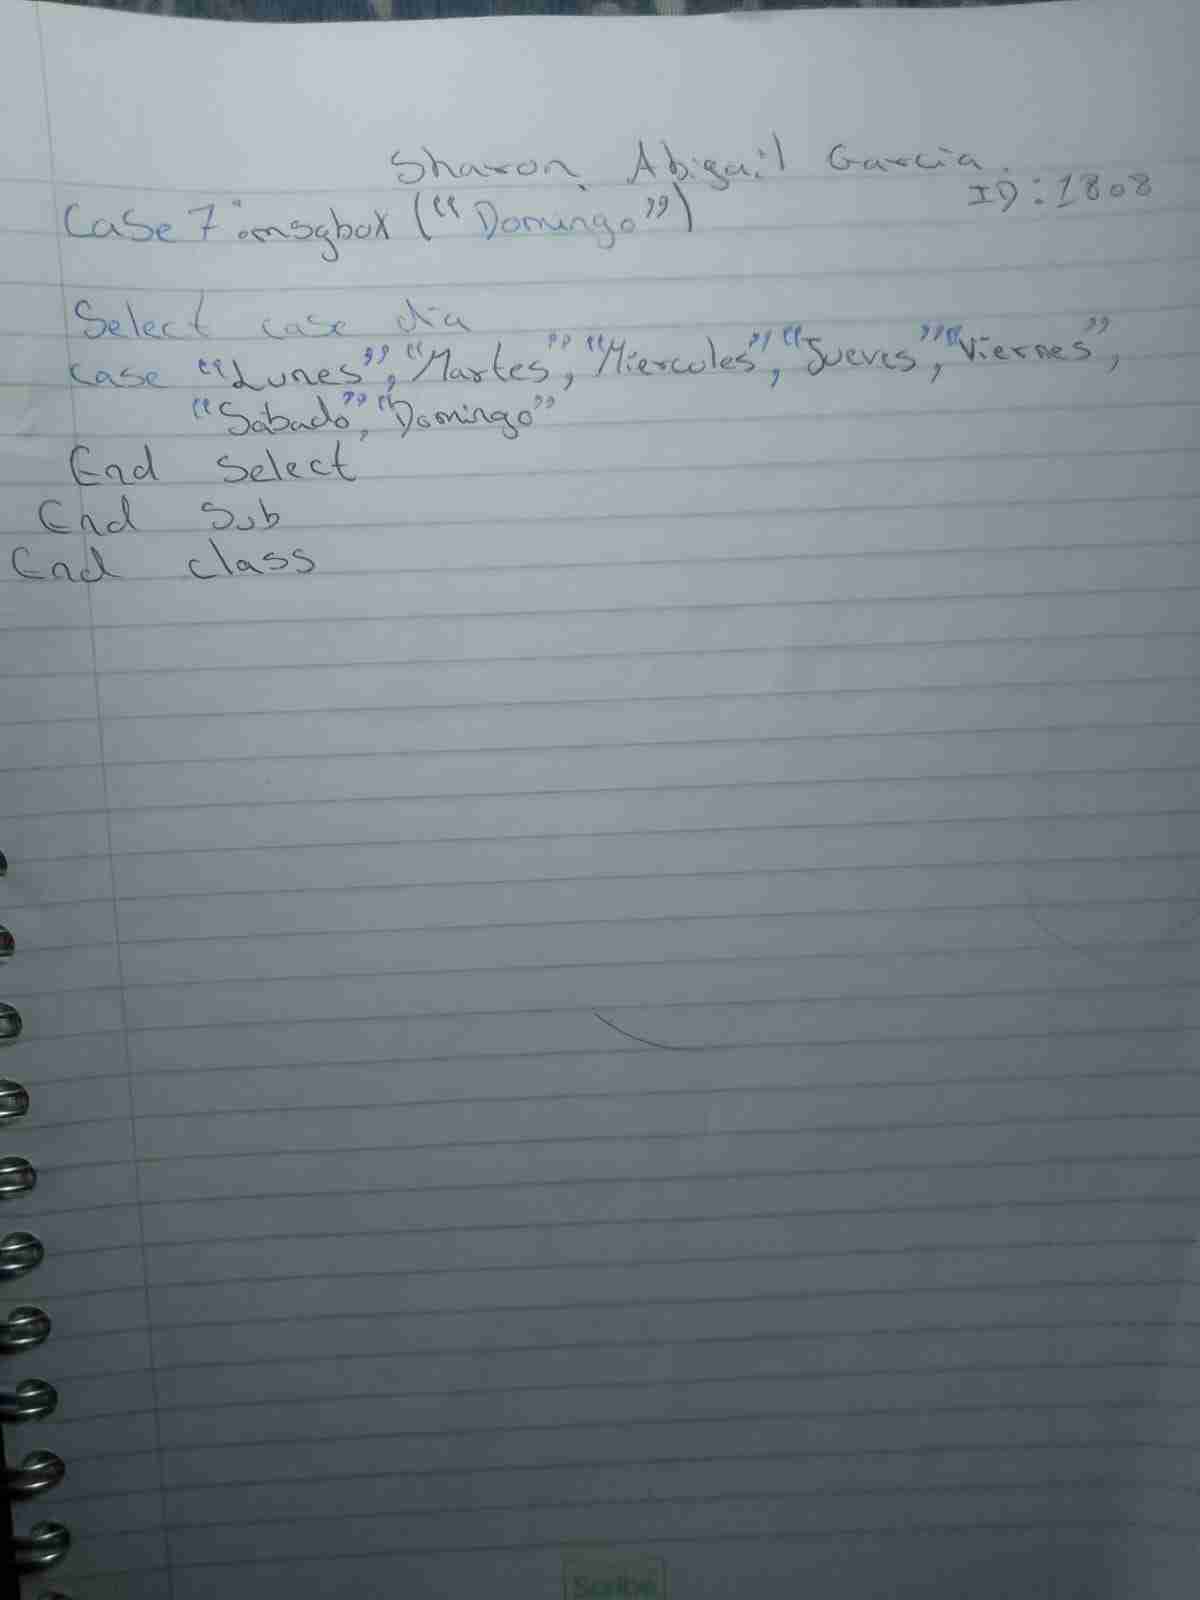 Sharon Abigail Garcia.
ID:1808
Case 7:msgbox (“Domingo”)
Select case dia
case “Lunes”, “Martes”, “Miercoles”, “Jueves”, “Viernes”,
“Sabado”, “Domingo”
End Select
End Sub
End class
Scribe